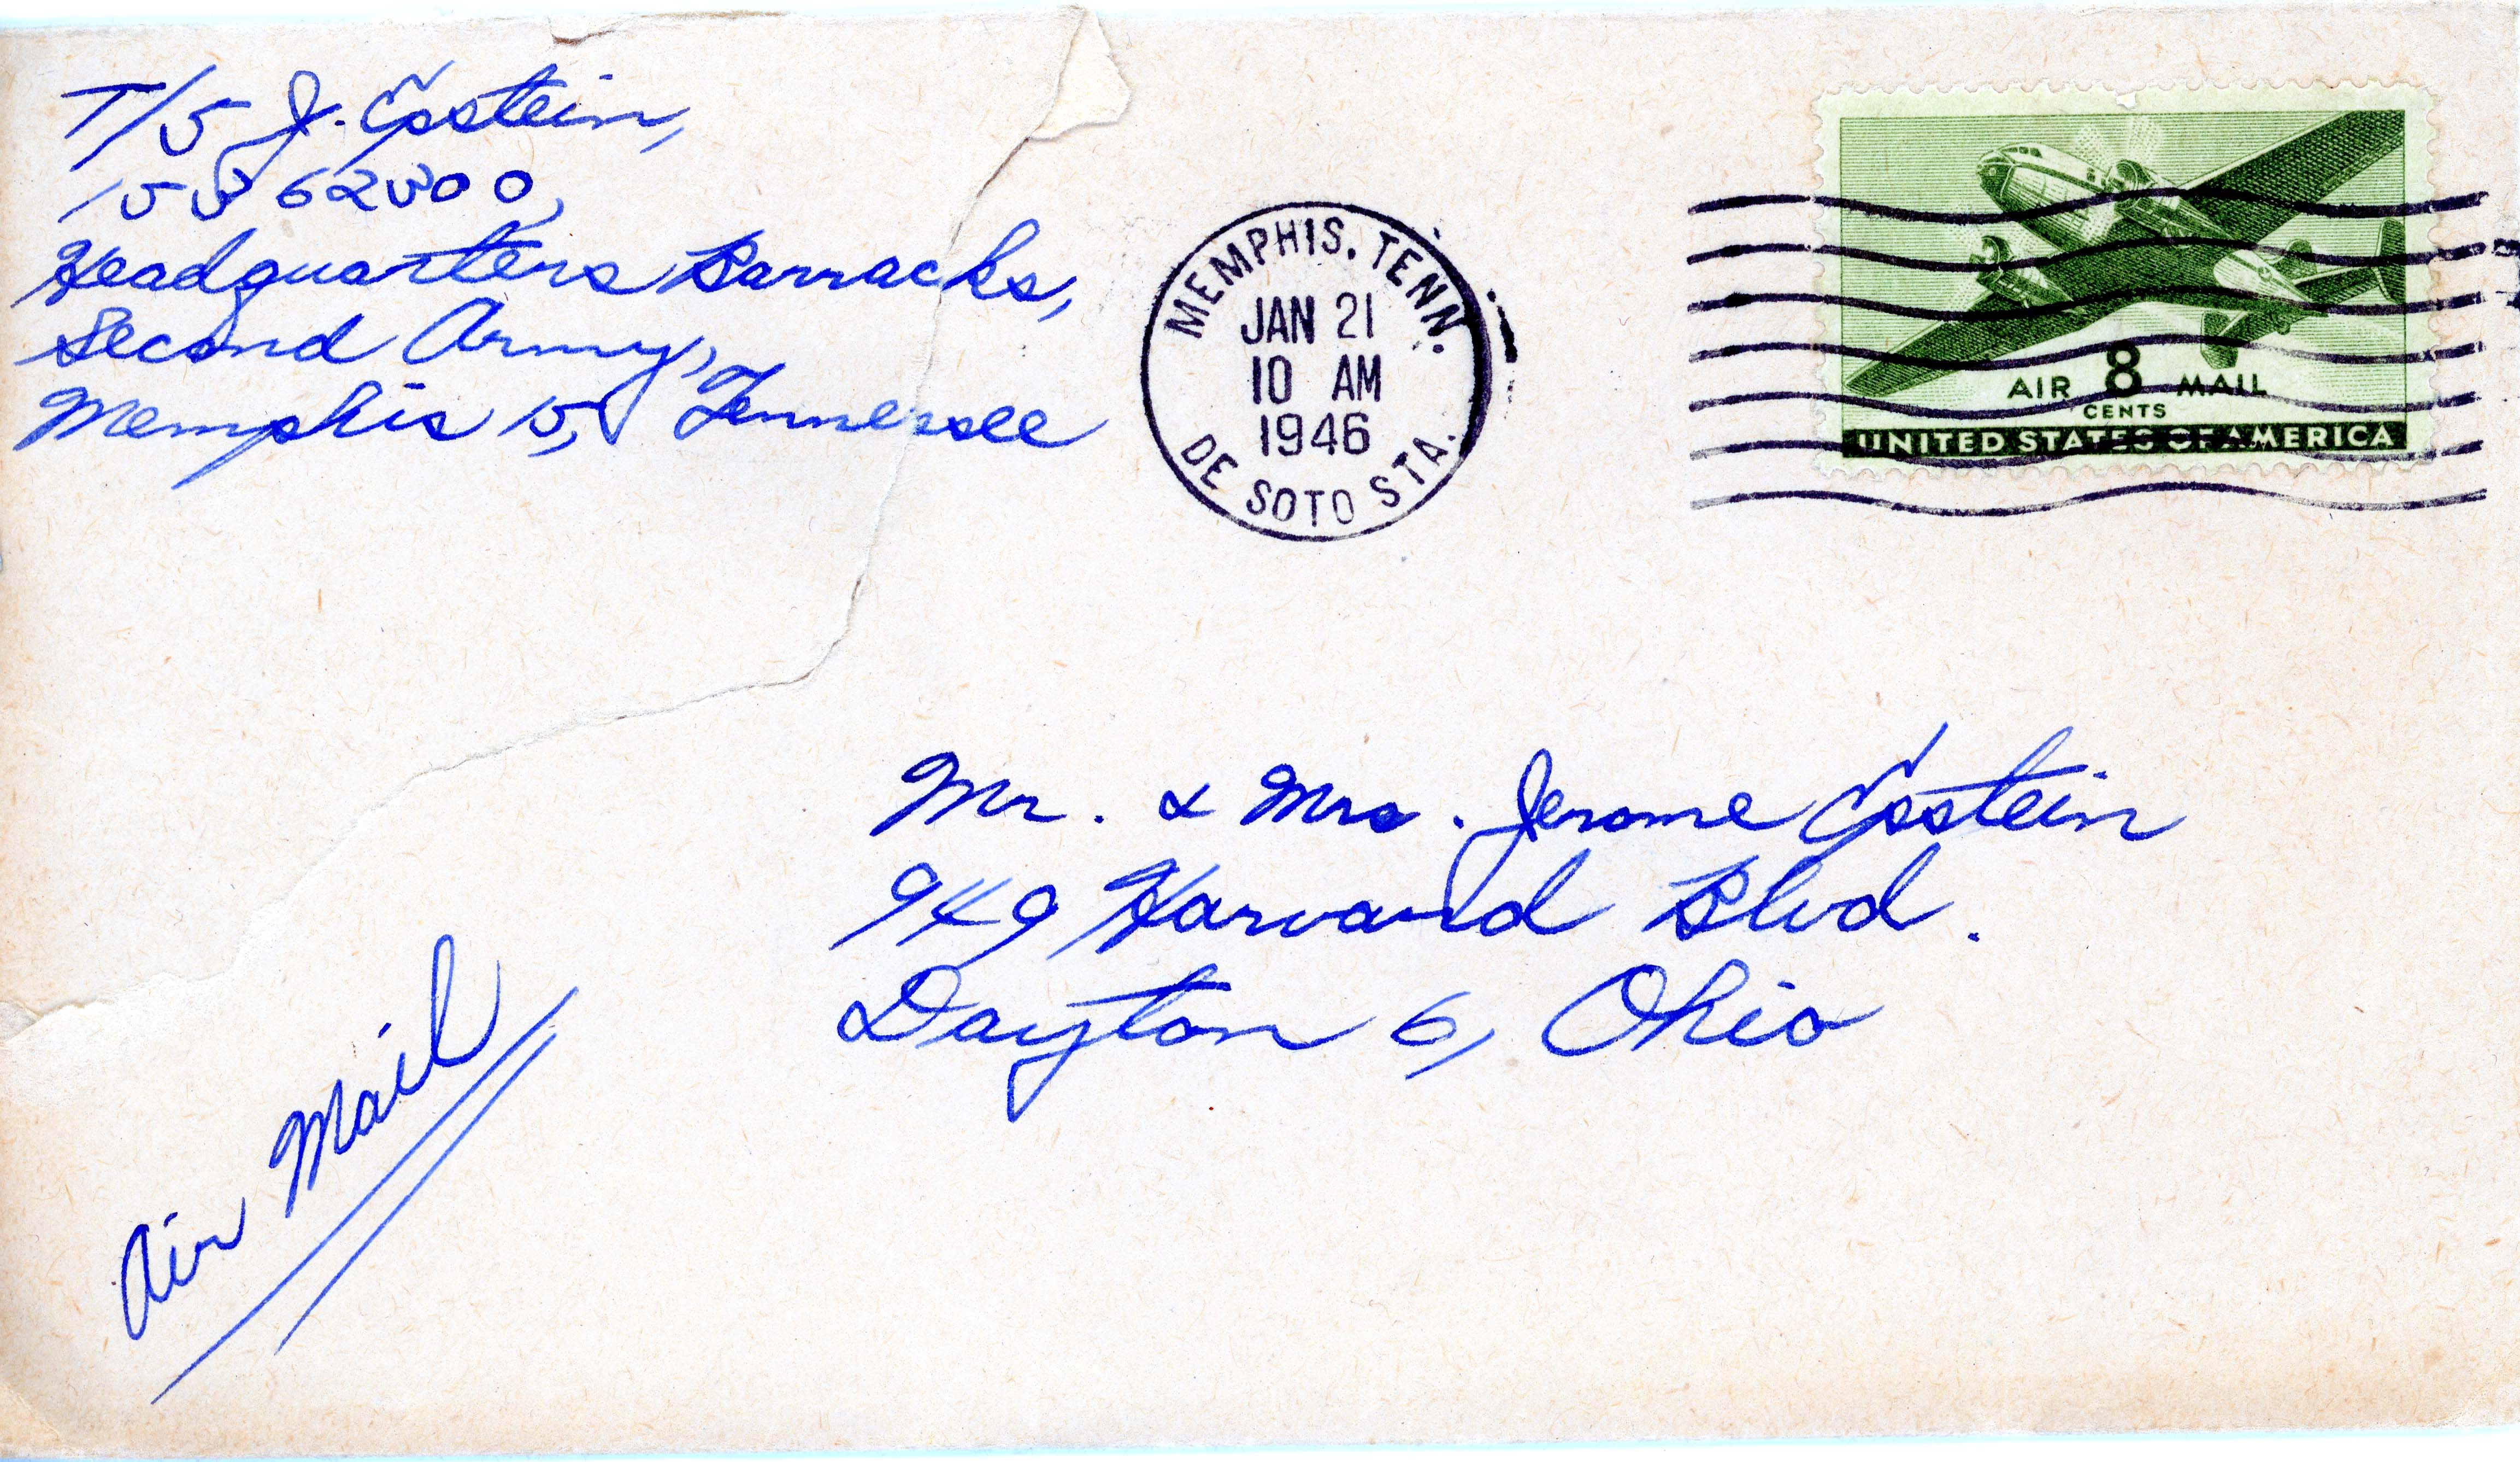 T/5 J. Epstein,
Headquarters Barracks,
Second Army,
Memphis 15, Tennessee
MEMPHIS, TENN.
JAN 21
10 AM
1946
DE SOTO STA.
AIR 8 MAIL
CENTS
UNITED STATES OF AMERICA
Mr. & Mrs. Jerome Epstein
949 Harvard Blvd.
Dayton 6, Ohio
Air Mail